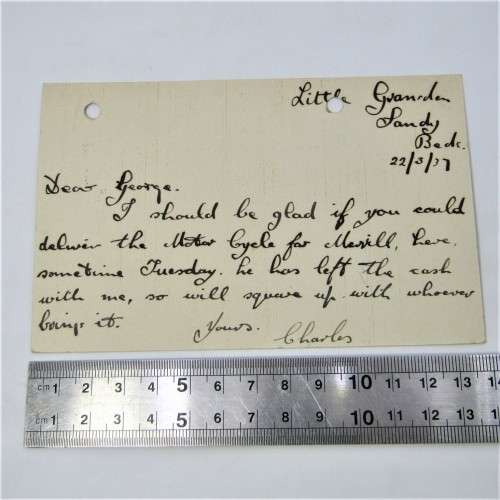 Little Gransden
Sandy
Beds.
22/3/37
Dear George.
I should be glad if you could
deliver the Motor Cycle for Merrill, here,
sometime Tuesday. he has left the cash
with me, so will square up with whoever
brings it.
Yours.
Charles
cm 1 2 3 4 5 6 7 8 9 10 11 12 13 14
cm 1 2 3 4 5 6 7 8 9 10 11 12 13